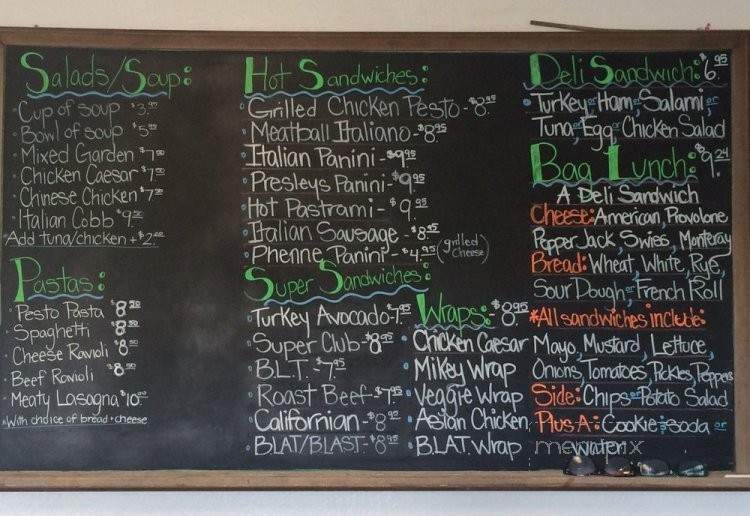 Salads/Soup:
Cup of soup $3.95
Bowl of soup $5
Mixed Garden $7.50
Chicken Caesar $7
Chinese Chicken $7
Italian Cobb $9
Add tuna/chicken + $2.
Pastas:
Pesto Pasta $8
Spaghetti $8
Cheese Ravioli $8
Beef Ravioli $8
Meaty Lasagna $10
*With choice of bread + cheese
Hot Sandwiches:
Grilled Chicken Pesto - $8.95
Meatball Italiano - $8.95
Italian Panini - $9.95
Presleys Panini - $9.95
Hot Pastrami - $9.95
Italian Sausage - $8.95
Phenne Panini - $4.95 (grilled cheese)
Super Sandwiches:
Turkey Avocado - $7.95
Super Club - $8.95
B.L.T. - $7.95
Roast Beef - $7.95
Californian - $8.95
BLAT/BLAST - $8.95
Wraps: - $8.95
Chicken Caesar
Mikey Wrap
Veggie Wrap
Asian Chicken
B.L.A.T. Wrap
Deli Sandwich: $6.95
Turkey or Ham, or Salami, or
Tuna, or Egg, or Chicken Salad
Bag Lunch: $9.24
A Deli Sandwich
Cheese: American, Provolone
PepperJack, Swiss, Monteray
Bread: Wheat, White, Rye,
Sour Dough or French Roll
*All sandwiches include:
Mayo, Mustard, Lettuce,
Onions, Tomatoes, Pickles, Peppers
Side: Chips or Potato Salad
Plus A: Cookie & soda or
water